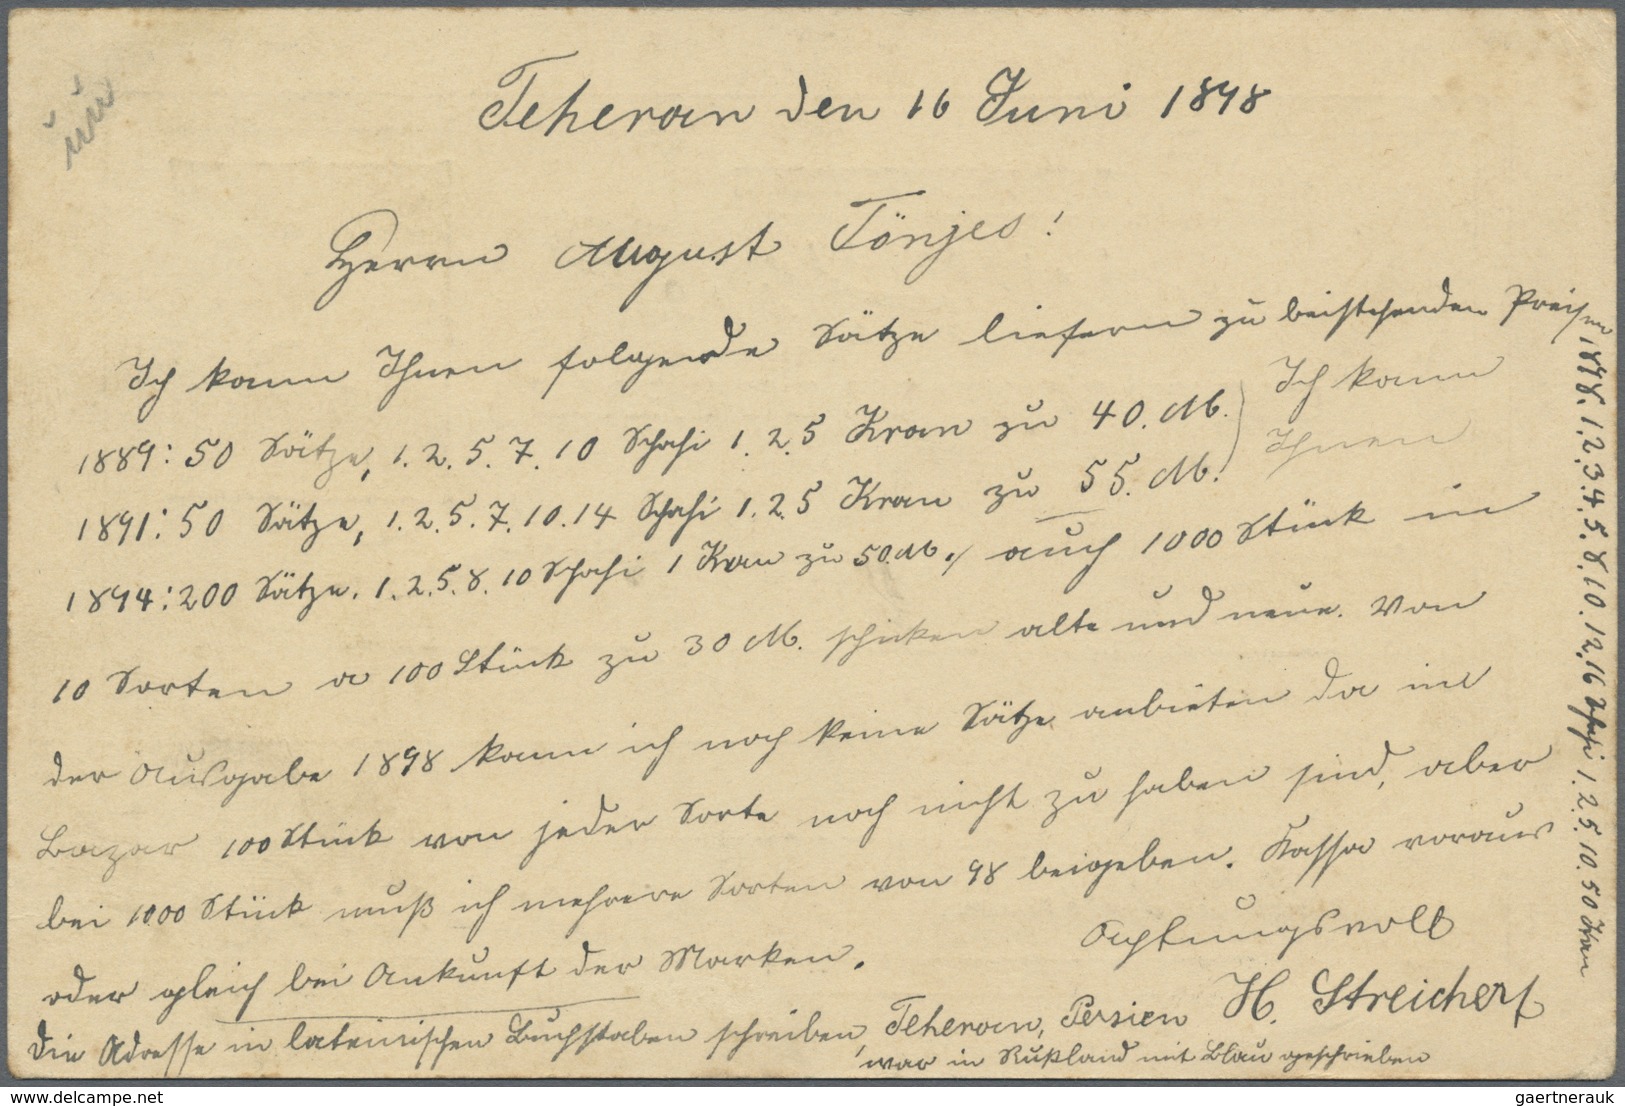 Teheran den 16 Juni 1898
Herrn August Tönjes!
Ich kann Ihnen folgende Sätze liefern zu beistehenden Preisen
1889: 50 Sätze, 1. 2. 5. 7. 10 Schahi 1. 2. 5 Kran zu 40. M.
1891: 50 Sätze, 1. 2. 5. 7. 10. 14 Schahi 1. 2. 5 Kran zu 55. M.
1894: 200 Sätze. 1. 2. 5. 8. 10 Schahi 1 Kran zu 50. M.
Ich kann
Ihnen
auch 1000 Stück in
10 Sorten a 100 Stück zu 30 M. schicken alte und neue. Von
der Ausgabe 1898 kann ich noch keine Sätze anbieten da im
Bazar 100 Stück von jeder Sorte noch nicht zu haben sind, aber
bei 1000 Stück muß ich mehrere Sorten von 98 beigeben. Kassa voraus
oder gleich bei Ankunft der Marken.
Achtungsvoll
H. Streichert
Teheran, Persien
Die Adresse in lateinischen Buchstaben schreiben,
war in Rußland mit Blau geschrieben
1898. 1. 2. 3. 4. 5. 8. 10. 12. 16 Schahi 1. 2. 5. 10. 50 Kran
gaertnerauk